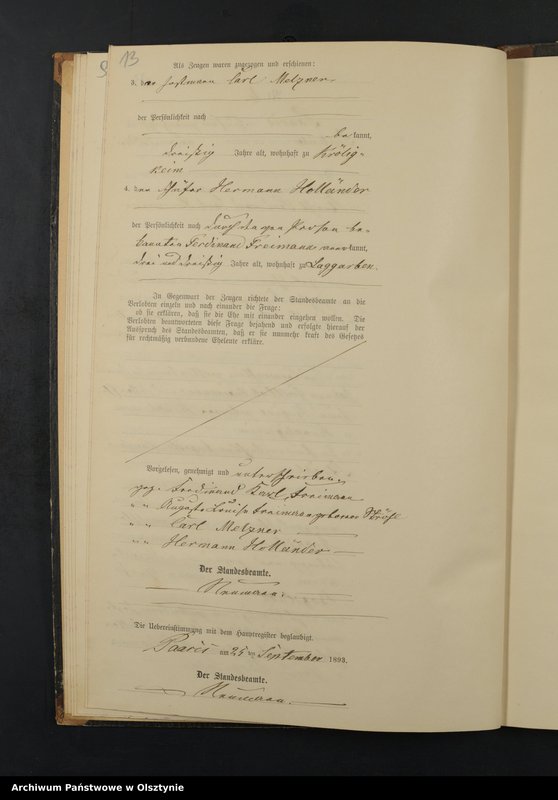 13
Als Zeugen waren zugezogen und erschienen:
3. der Instmann Carl Metzner
der Persönlichkeit nach
be kannt,
dreißig Jahre alt, wohnhaft zu Krölig-
keim
4. der Schäfer Hermann Holländer
der Persönlichkeit nach durch den Person be-
kannten Ferdinand Freimann anerkannt,
drei und dreißig Jahre alt, wohnhaft zu Laggarben.
In Gegenwart der Zeugen richtete der Standesbeamte an die
Verlobten einzeln und nach einander die Frage:
ob sie erklären, daß sie die Ehe mit einander eingehen wollen. Die
Verlobten beantworteten diese Frage bejahend und erfolgte hierauf der
Ausspruch des Standesbeamten, daß er sie nunmehr kraft des Gesetzes
für rechtmäßig verbundene Eheleute erkläre.
Vorgelesen, genehmigt und unterschrieben
gez. Ferdinand Karl Freimann
" " Auguste Louise Freimann geborene
" " Carl Metzner
" " Hermann Holländer
Der Standesbeamte.
Neumann.
Die Uebereinstimmung mit dem Hauptregister beglaubigt.
Paaris am 24 ten September 1893.
Der Standesbeamte.
Neumann.
Archiwum Państwowe w Olsztynie